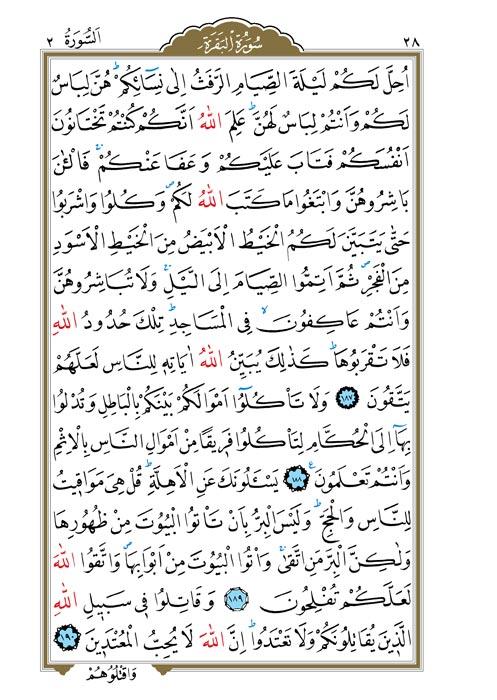 ٢٨ سُورَةُ الْبَقَرَةِ اَلسُّورَةُ ٢
اُحِلَّ لَكُمْ لَيْلَةَ الصِّيَامِ الرَّفَثُ اِلٰى نِسَٓائِكُمْۜ هُنَّ لِبَاسٌ
لَكُمْ وَاَنْتُمْ لِبَاسٌ لَهُنَّۜ عَلِمَ اللّٰهُ اَنَّكُمْ كُنْتُمْ تَخْتَانُونَ
اَنْفُسَكُمْ فَتَابَ عَلَيْكُمْ وَعَفَا عَنْكُمْۚ فَالْـٰٔنَ
بَاشِرُوهُنَّ وَابْتَغُوا مَا كَتَبَ اللّٰهُ لَكُمْۖ وَكُلُوا وَاشْرَبُوا
حَتّٰى يَتَبَيَّنَ لَكُمُ الْخَيْطُ الْاَبْيَضُ مِنَ الْخَيْطِ الْاَسْوَدِ
مِنَ الْفَجْرِۖ ثُمَّ اَتِمُّوا الصِّيَامَ اِلَى الَّيْلِۚ وَلَا تُبَاشِرُوهُنَّ
وَاَنْتُمْ عَاكِفُونَۙ فِي الْمَسَاجِدِۜ تِلْكَ حُدُودُ اللّٰهِ
فَلَا تَقْرَبُوهَاۜ كَذٰلِكَ يُبَيِّنُ اللّٰهُ اٰيَاتِه۪ لِلنَّاسِ لَعَلَّهُمْ
يَتَّقُونَ ﴿١٨٧﴾ وَلَا تَأْكُلُٓوا اَمْوَالَكُمْ بَيْنَكُمْ بِالْبَاطِلِ وَتُدْلُوا
بِهَٓا اِلَى الْحُكَّامِ لِتَأْكُلُوا فَر۪يقًا مِنْ اَمْوَالِ النَّاسِ بِالْاِثْمِ
وَاَنْتُمْ تَعْلَمُونَ ﴿١٨٨﴾ يَسْـَٔلُونَكَ عَنِ الْاَهِلَّةِۜ قُلْ هِيَ مَوَاق۪يتُ
لِلنَّاسِ وَالْحَجِّۜ وَلَيْسَ الْبِرُّ بِاَنْ تَأْتُوا الْبُيُوتَ مِنْ ظُهُورِهَا
وَلٰكِنَّ الْبِرَّ مَنِ اتَّقٰىۚ وَأْتُوا الْبُيُوتَ مِنْ اَبْوَابِهَاۖ وَاتَّقُوا اللّٰهَ
لَعَلَّكُمْ تُفْلِحُونَ ﴿١٨٩﴾ وَقَاتِلُوا ف۪ي سَب۪يلِ اللّٰهِ
الَّذ۪ينَ يُقَاتِلُونَكُمْ وَلَا تَعْتَدُواۜ اِنَّ اللّٰهَ لَا يُحِبُّ الْمُعْتَد۪ينَ ﴿١٩٠﴾
وَاقْتُلُوهُمْ